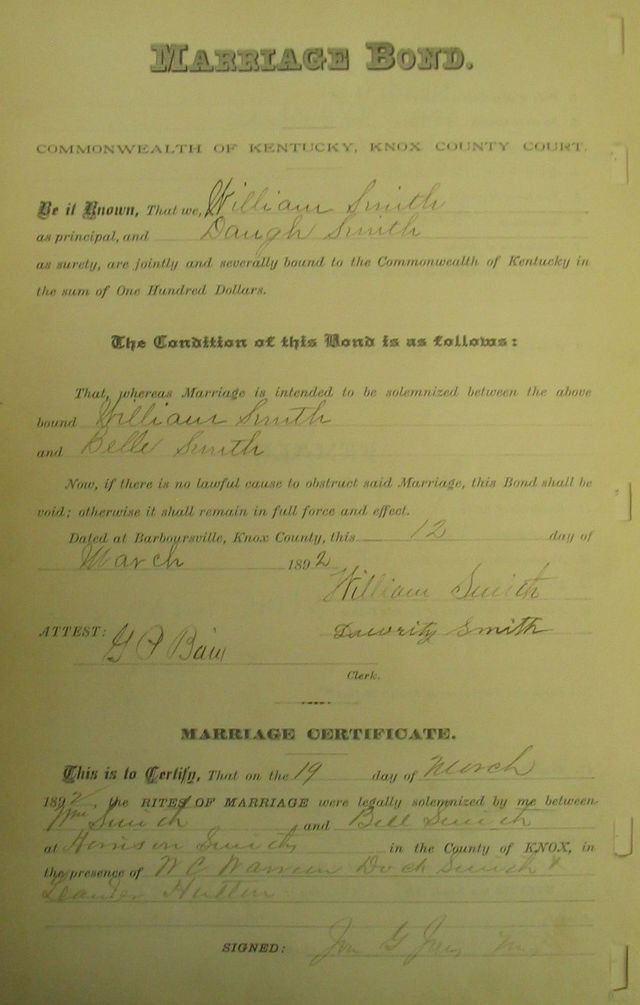 MARRIAGE BOND.
COMMONWEALTH OF KENTUCKY, KNOX COUNTY COURT.
Be it Known, That we, William Smith
as principal, and Daugh Smith
as surety, are jointly and severally bound to the Commonwealth of Kentucky in
the sum of One Hundred Dollars.
The Condition of this Bond is as follows:
That, whereas Marriage is intended to be solemnized between the above
bound William Smith
and Belle Smith
Now, if there is no lawful cause to obstruct said Marriage, this Bond shall be
void; otherwise it shall remain in full force and effect.
Dated at Barboursville, Knox County, this 12 day of
March 1892
William Smith
ATTEST: Smith
G P Bain
Clerk.
MARRIAGE CERTIFICATE.
This is to Certify, That on the 19 day of March
1892, the RITES OF MARRIAGE were legally solemnized by me between
Wm Smith and Bell Smith
at Harrison Smiths in the County of KNOX, in
the presence of W C Warren Dock Smith &
Leander
SIGNED: